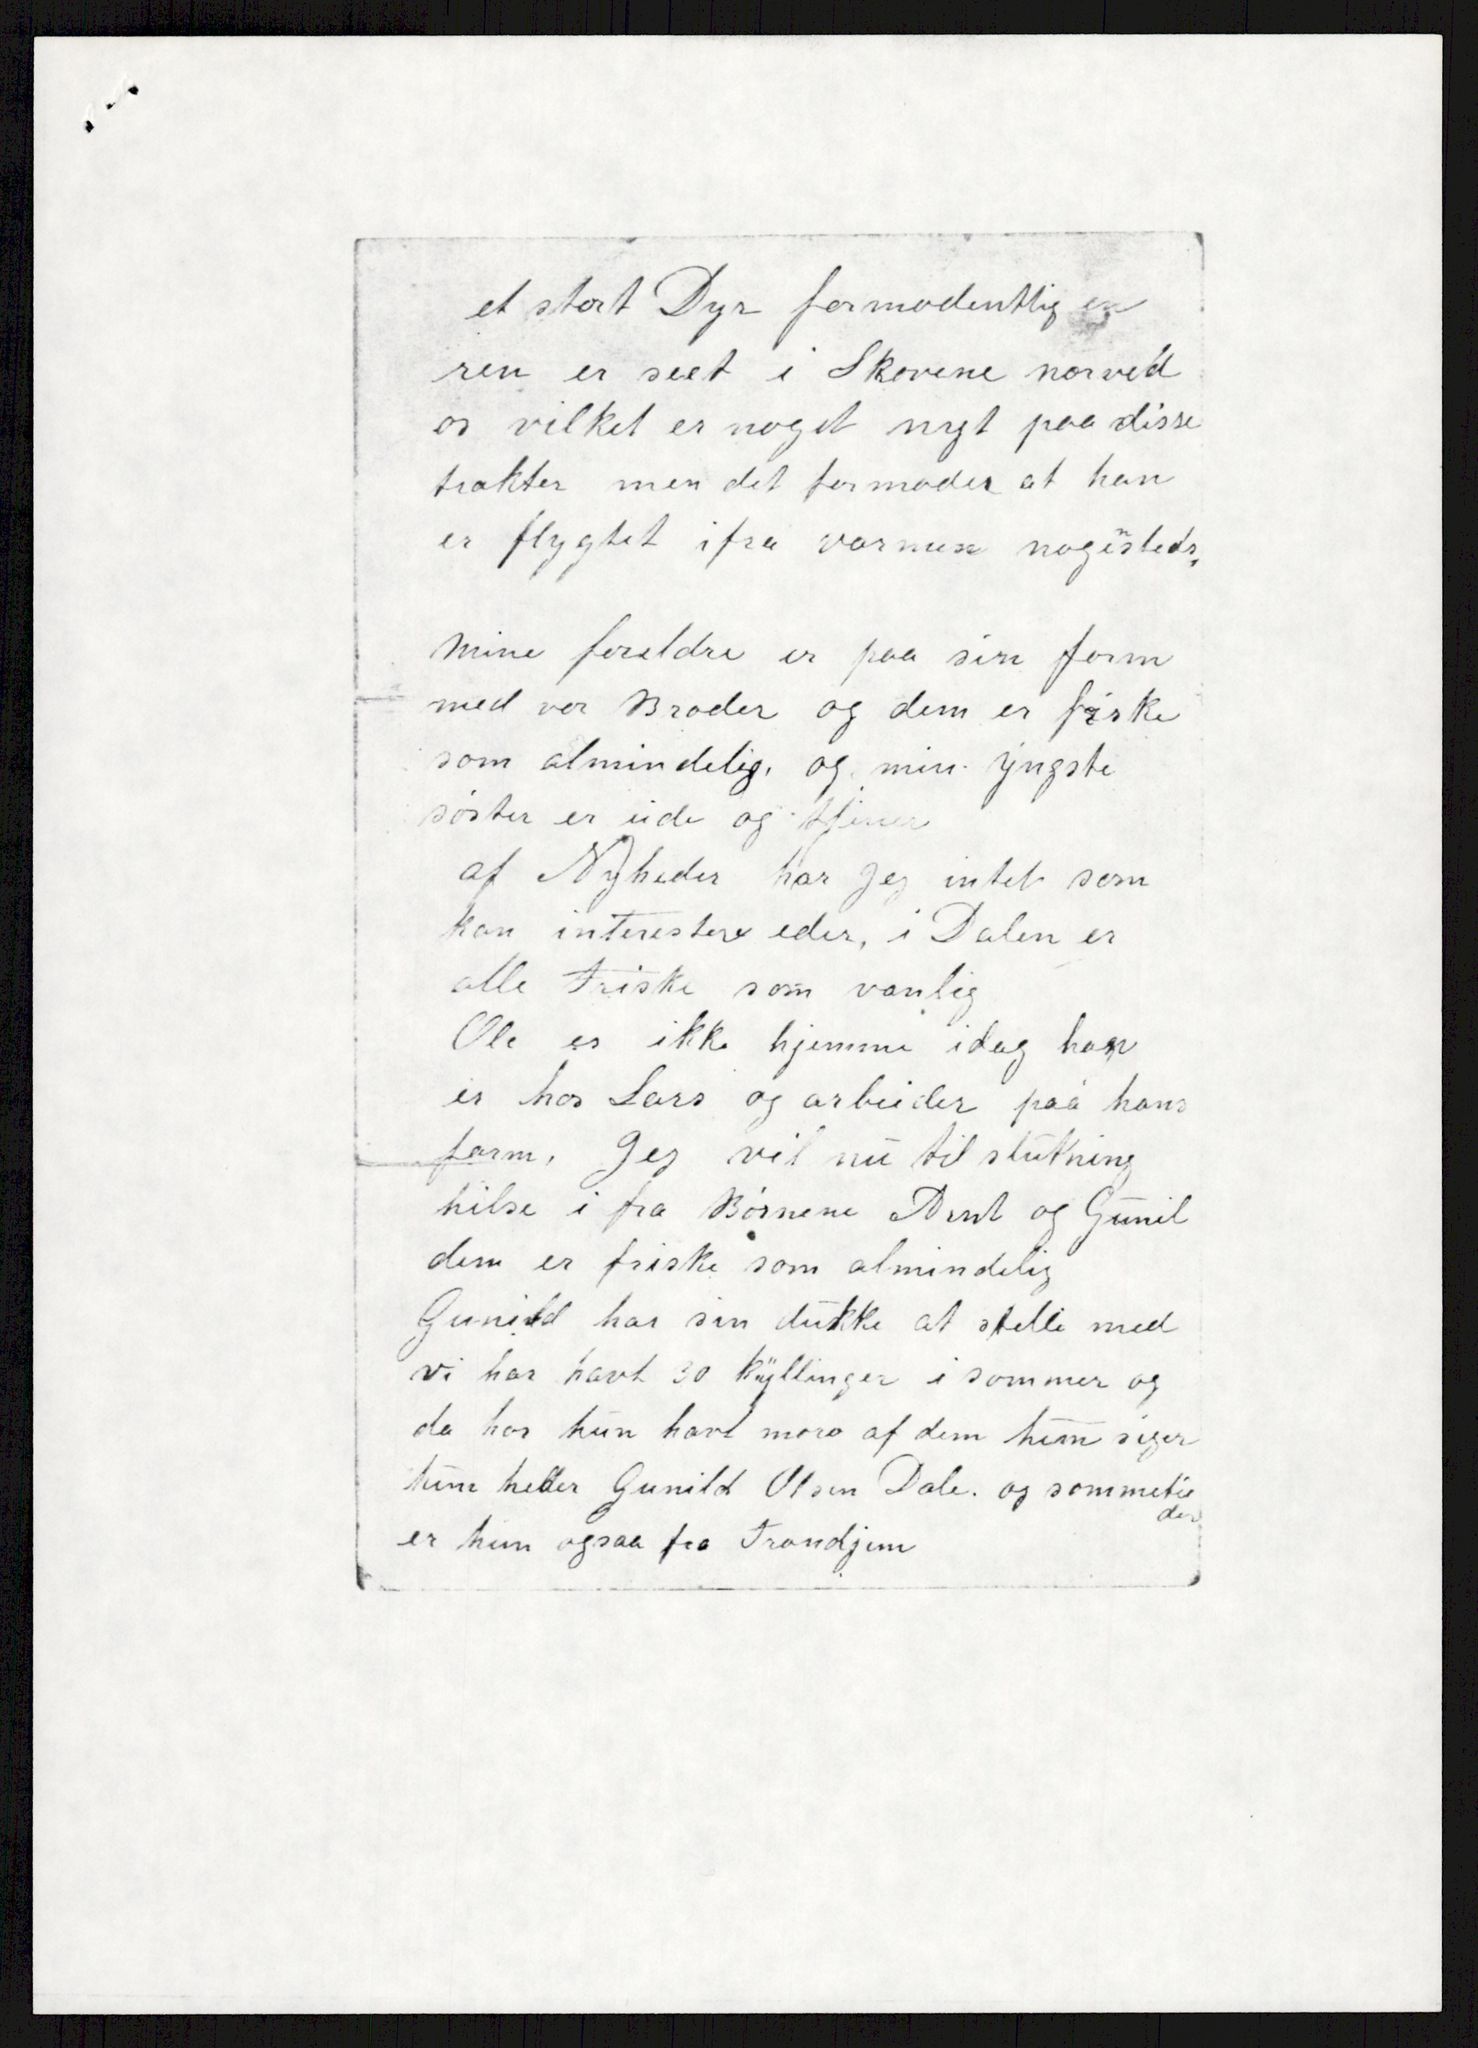 et stort Dyr formodentlig en
ren er seet i Skovene norved
os vilket er noget nygt paa disse
trakter men det formodes at han
er flygtet ifra varmen nogensteds,
mine foreldre er paa sin form
med vor Broder og dem er friske
som almindelig, og min yngste
søster er ude og tjener
af Nyheder har Jeg intet som
kan interestere eder, i Dalen er
alle Friske som vanlig
Ole er ikke hjemme idag han
er hos Lars og arbeider paa hans
farm, Jeg vil nu til slutning
hilse i fra Børnene Arnt og Gunil
dem er friske som almindelig
Gunild har sin dukke at stelle med
vi har havt 30 kyllinger i sommer og
da har hun havt moro af dem hun siger
hun heder Gunild Olsen Dale. og sommetie
der
er hun ogsaa fra Trondjem